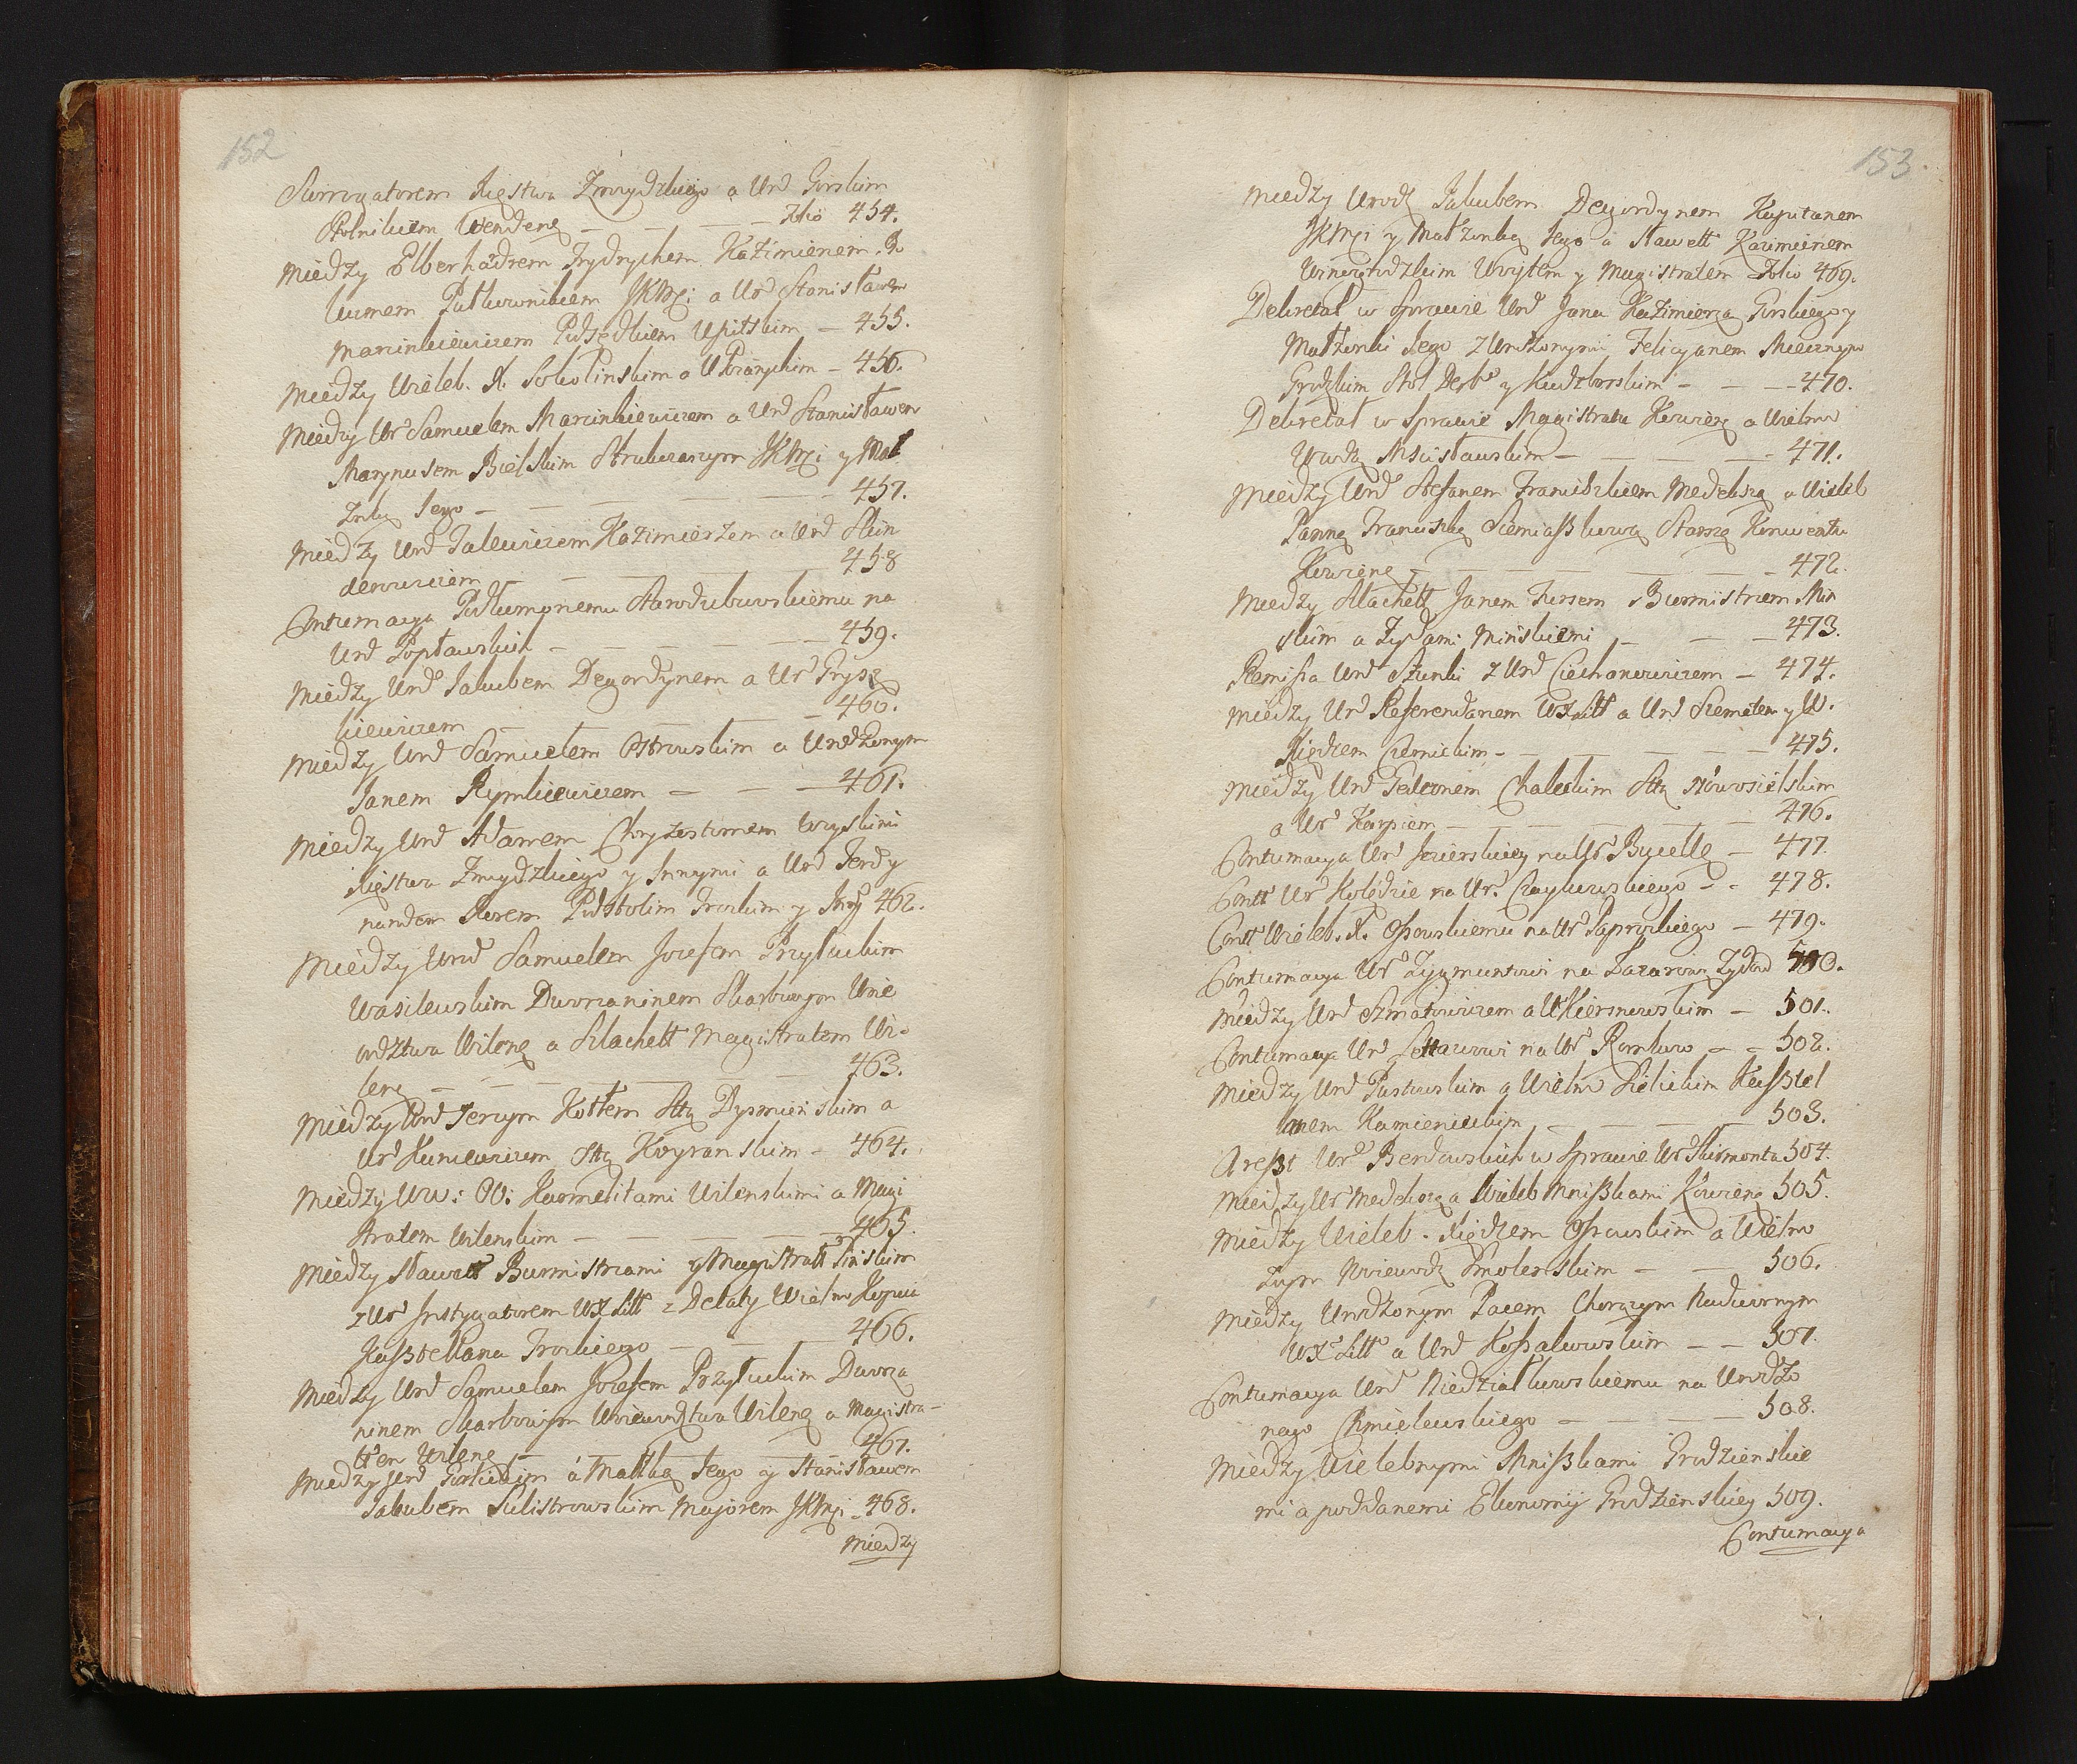 152
Surrogatorem Xięstwa Zmuydzkiego a Urd Gorskim
Stolnikiem Wendeng — — — folio 454.
Między Elberhadrem Frydrychem Kazimierzem
Pułkownikiem JKMci a Urd Stanisławem
Marcinkiewiczem Podsędkiem Upitskim — 455.
Między Wieleb. X. Sokolinskim a — 456.
Między Ur Samuelem Marcinkiewiczem a Urd Stanisławem
Marynusem Bielskim Strukczaszym JKMci y Mał
żnką Jego — — — 457.
Między Urd Jalewiczem Kazimierzem a Urd Skin
derowiczem — — — 458
Contumacya Podkomorzemu Starodubowskiemu na
Urd Łopłauskich — — — 459.
Między Urd Jakubem Degordynem a Ur Grysz
kiewiczem — — — 460.
Między Urd Samuelem Ostrowskim a Urodzonym
Janem Rymkiewiczem — — — 461.
Między Urd Adamem Chryzostomem Woyskimi
Xięstwa Zmuydzkiego y Innymi a Urd Ferdy
nandem Rorem Podstolim Trockim y Iny 462.
Między Urd Samuelem Jozefem Przyłuckim
Wasilewskim Dworzaninem Skarbowym Woie
wodztwa Wileng a Szlachett Magistratem Wi-
leng — — — 463.
Między Urd Jerzym Kottem Sttą Dyzmieńskim a
Ur Kuncewiczem Sttą Koyranskim — 464.
Między WW: OO: Karmelitami Wilenskimi a Magi
stratem Wilenskim — — — 465.
Między Sławett Burmistrzami y Magistratt Pinskim
z Ur Instygatorem WXLitt z Delaty Wielmo Kopcia
Kasztellana Trockiego — — — 466.
Między Urd Samuelem Jozefem Przyłuckim Dworza
ninem Skarbowym Woiewodztwa Wileng a Magistra-
ttem Wileng — 467.
Między Urd a Małżką Jego y Stanisławem
Jakubem Sulistrowskim Majorem JKMci — 468.
Między
153.
Między Urodz Jakubem Degordynem Kapitanem
JKMci y Małżonką Jego a Sławett Kazimierzem
Woytem y Magistratem folio 469.
Dekretał w Sprawie Urd Jana Kazimierza Gorskiego y
Małżonki Jego z Urodzonymi Felicyanem
Grodzkim — — — 470.
Dekretał w Sprawie Magistratu Kowieng a Wielmo
Wwdą Mscisławskim — — — 471.
Między Urd Stefanem Franciszkiem Medekszą a Wieleb
Panną Franciszką Siemiaszkową Starszą Konwentu
Kowieng — — — 472.
Między Szlachett Janem Fursem Burmistrzem Min
skim a Zydami Mińskiemi — — — 473.
Remissa Urd Szunki z Urd Ciechanowiczem — 474.
Między Urd Referendarzem WXLitt a Urd Szemetem y W.
Xiędzem Czernickim — — — 475.
Między Urd Gedeonem Chaleckim Sttą Nowosielskim
a Ur Karpiem — — — 476.
Contumacya Urd Jezierskiey na Ur Bucellę — 477.
Contt Ur Kolędzie na Ur. Czaykowskiego — 478.
Contt Wieleb. X. Ossowskiemu na Ur Paprockiego — 479.
Contumacya Ur Zygmuntowi na Łazarowę Zydow 500.
Między Urd Szmatowiczem a Ur Kiersnowskim — 501.
Contumacya Urd Lettawowi na Ur Romkowo — 502.
Między Urd Pustowskim a Wielmo Kasztel
lanem Kamienieckim — — — 503.
Areszt Urd Berdowskich w Sprawie Ur Skirmonta 504.
Między Ur Medekszą a Wieleb Mniszkami Kowieng 505.
Między Wieleb. Xiędzem Ossowskim a Wielmo
żnym Woiewodz Smolenskim — — 506.
Między Urodzonym Pacem Chorążym Nadwornym
WXLitt a Urd Kossakowskim — — 507.
Contumacya Urd Niedziałkowskiemu na Urodzo
nego Chmielewskiego — — — 508.
Między Wielebnymi Mniszkami Grodzienskie
mi a poddanemi Ekonomij Grodzienskiey 509.
Contumacya